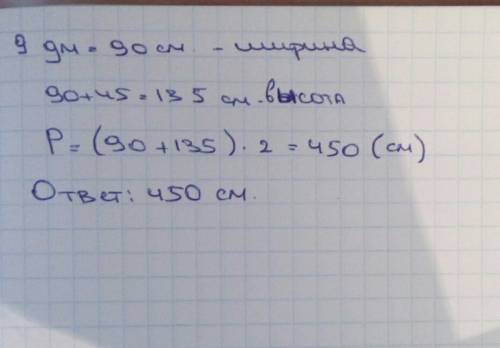 9 дм = 90 см - ширина
90+45=135 см-высота
P=(90+135)·2=450(см)
Ответ: 450 см.